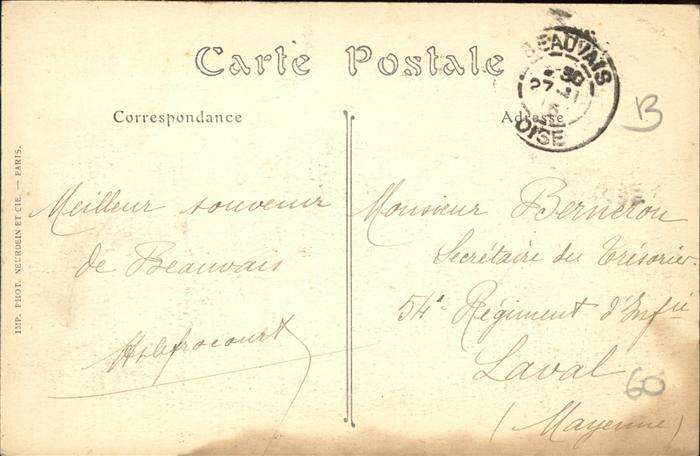 Carte Postale
BEAUVAIS
OISE
B
Correspondance
Adresse
Meilleur souvenir
de Beauvais
Monsieur Berneron
Secrétaire du Trésorier
54e Régiment d'Infie
Laval
(Mayenne)
60
IMP. PHOT. NEURDEIN ET CIE. — PARIS.